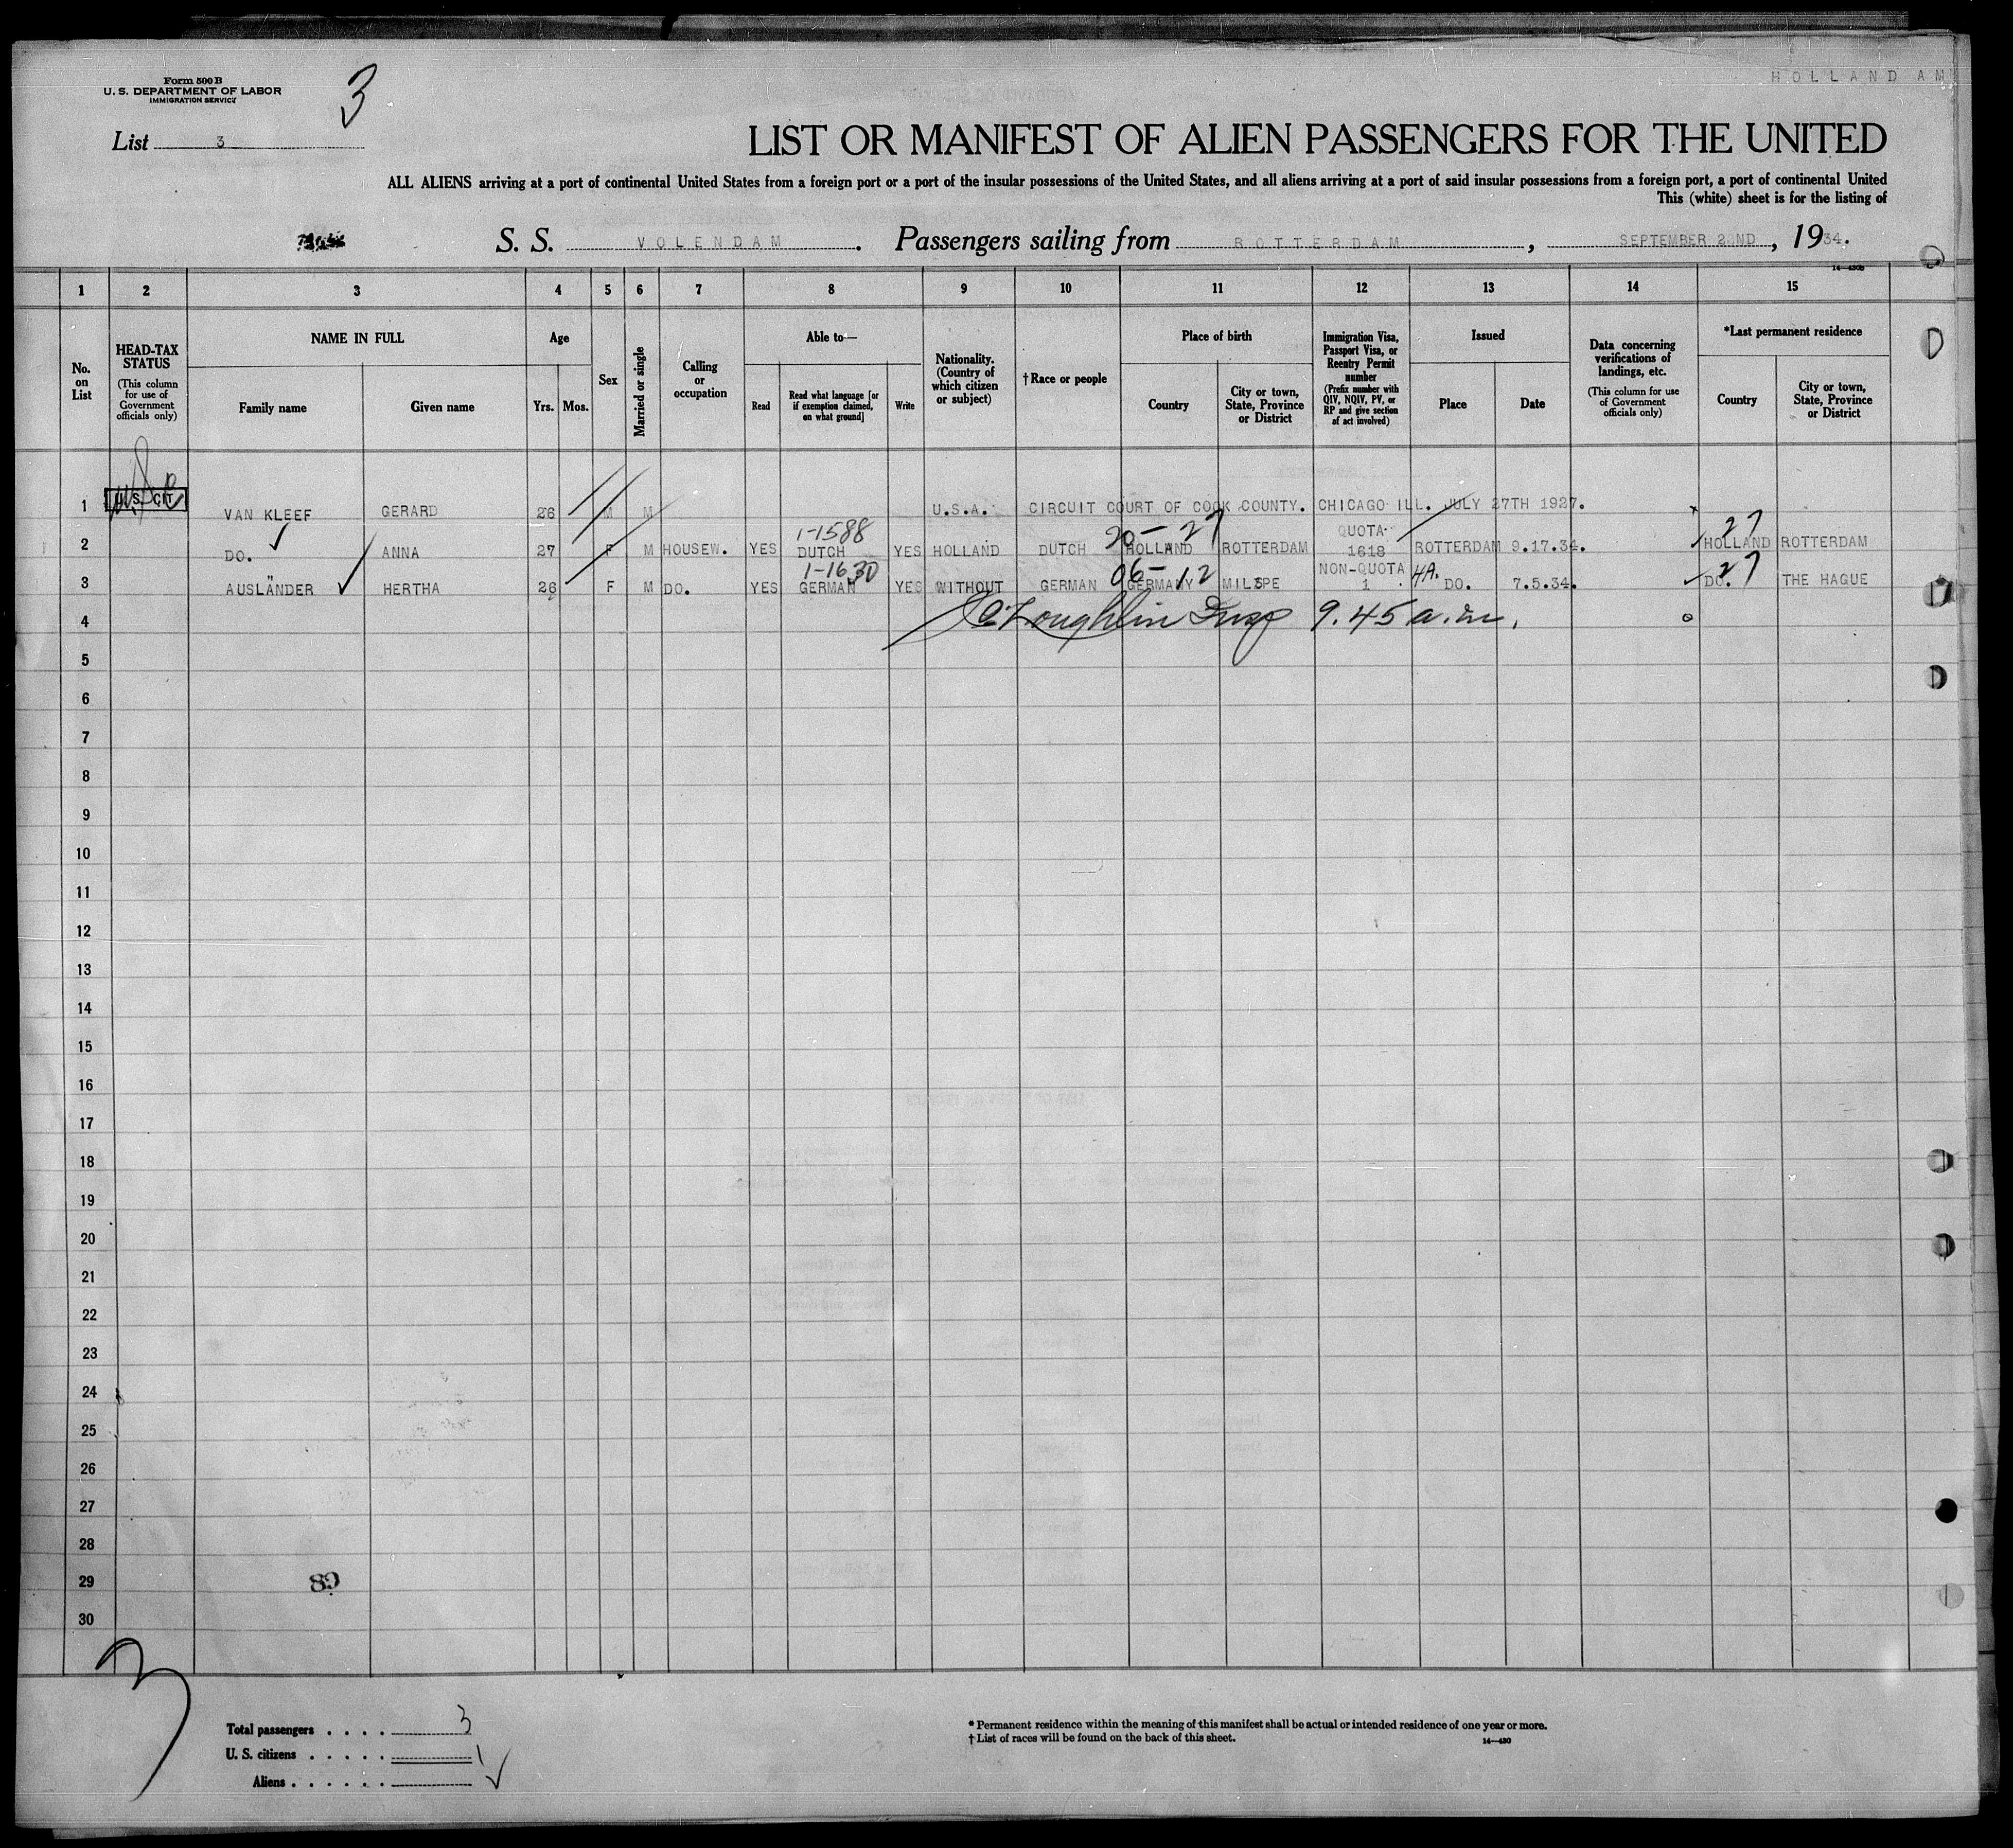 HOLLAND AM
Form 500 B
U. S. DEPARTMENT OF LABOR
IMMIGRATION SERVICE
3
List 3
LIST OR MANIFEST OF ALIEN PASSENGERS FOR THE UNITED
ALL ALIENS arriving at a port of continental United States from a foreign port or a port of the insular possessions of the United States, and all aliens arriving at a port of said insular possessions from a foreign port, a port of continental United
This (white) sheet is for the listing of
S. S. VOLENDAM. Passengers sailing from ROTTERDAM, SEPTEMBER 22ND, 1934.
14—430B
1 2 3 4 5 6 7 8 9 10 11 12 13 14 15
No. on List
HEAD-TAX STATUS
(This column for use of Government officials only)
NAME IN FULL
Family name
Given name
Age
Yrs. Mos.
Sex
Married or single
Calling or occupation
Able to—
Read
Read what language [or if exemption claimed, on what ground]
Write
Nationality. (Country of which citizen or subject)
†Race or people
Place of birth
Country
City or town, State, Province or District
Immigration Visa, Passport Visa, or Reentry Permit number
(Prefix number with QIV, NQIV, PV, or RP and give section of act involved)
Issued
Place
Date
Data concerning verifications of landings, etc.
(This column for use of Government officials only)
*Last permanent residence
Country
City or town, State, Province or District
1 U.S. CIT. VAN KLEEF GERARD 26 M M U.S.A. CIRCUIT COURT OF COOK COUNTY. CHICAGO ILL. JULY 27TH 1927.
1-1588 20-27 QUOTA 27
2 DO. ANNA 27 F M HOUSEW. YES DUTCH YES HOLLAND DUTCH HOLLAND ROTTERDAM 1618 ROTTERDAM 9.17.34. HOLLAND ROTTERDAM
1-1630 06-12 NON-QUOTA 4A. 27
3 AUSLÄNDER HERTHA 26 F M DO. YES GERMAN YES WITHOUT GERMAN GERMANY MILSPE 1 DO. 7.5.34. DO. THE HAGUE
4 Loughlin Insp 9.45 a.m.
5
6
7
8
9
10
11
12
13
14
15
16
17
18
19
20
21
22
23
24
25
26
27
28
29 89
30
3
Total passengers . . . . 3
U. S. citizens . . . . . 1
Aliens . . . . . .
* Permanent residence within the meaning of this manifest shall be actual or intended residence of one year or more.
† List of races will be found on the back of this sheet.
14—430